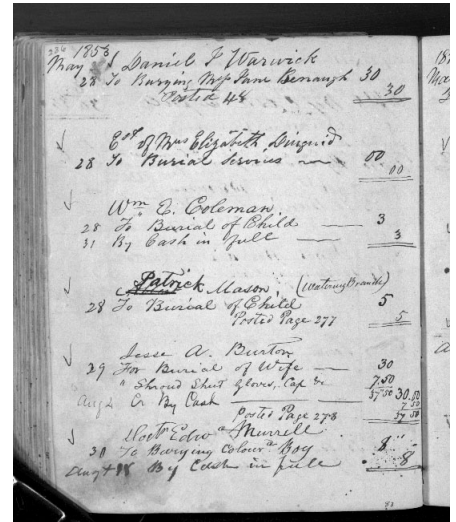 236 1853
May S Daniel F Warwick
28 To Burying Mrs Jane Benaugh 30
Posted 48 30
Est of Mrs Elizabeth Dinguid
28 To Burial Services 00
00
Wm E. Coleman
28 To Burial of Child 3
31 By Cash in full 3
Patrick Mason (Watering Branch)
28 To Burial of Child 5
Posted Page 277 5
Jesse A. Burton
29 For Burial of Wife 30
" Shroud Sheet Gloves, Cap &c 7.50
Aug 2 Cr By Cash 37 50 30.00
7 50
Posted Page 278 37 50
Doctr Edwd Murrell
30 To Burying Colourd Boy 8
Augt 18 By Cash in full 8